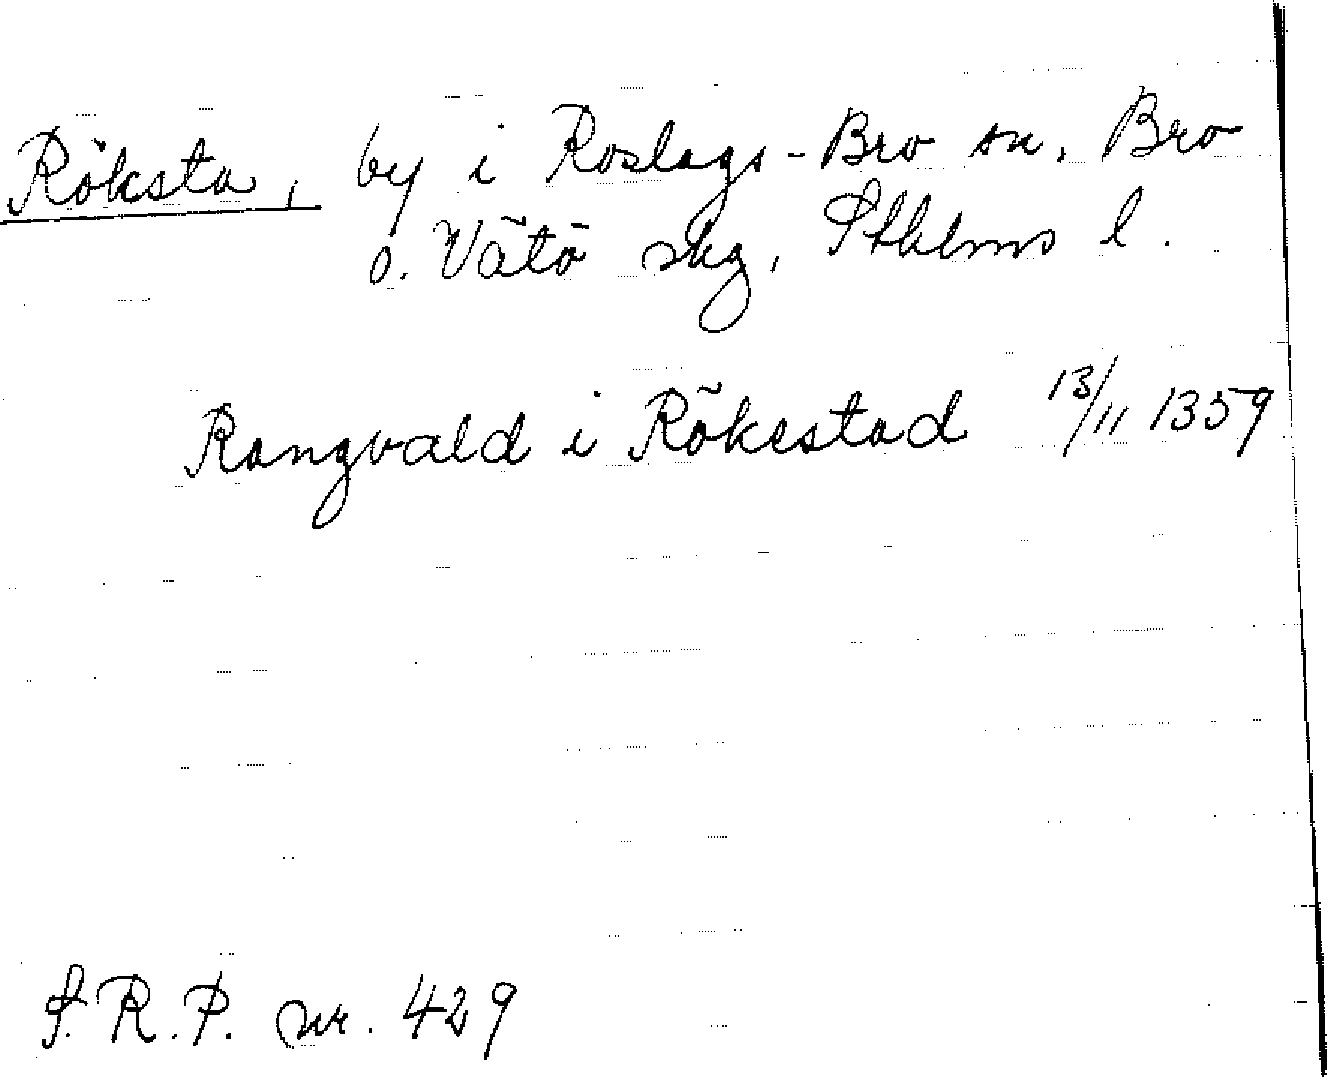 Röksta, by i Roslags-Bro sn, Bro
o. Vätö skg, Sthlms l.
Rangvald i Rökestad 13/11 1359
S.R.P. nr. 429